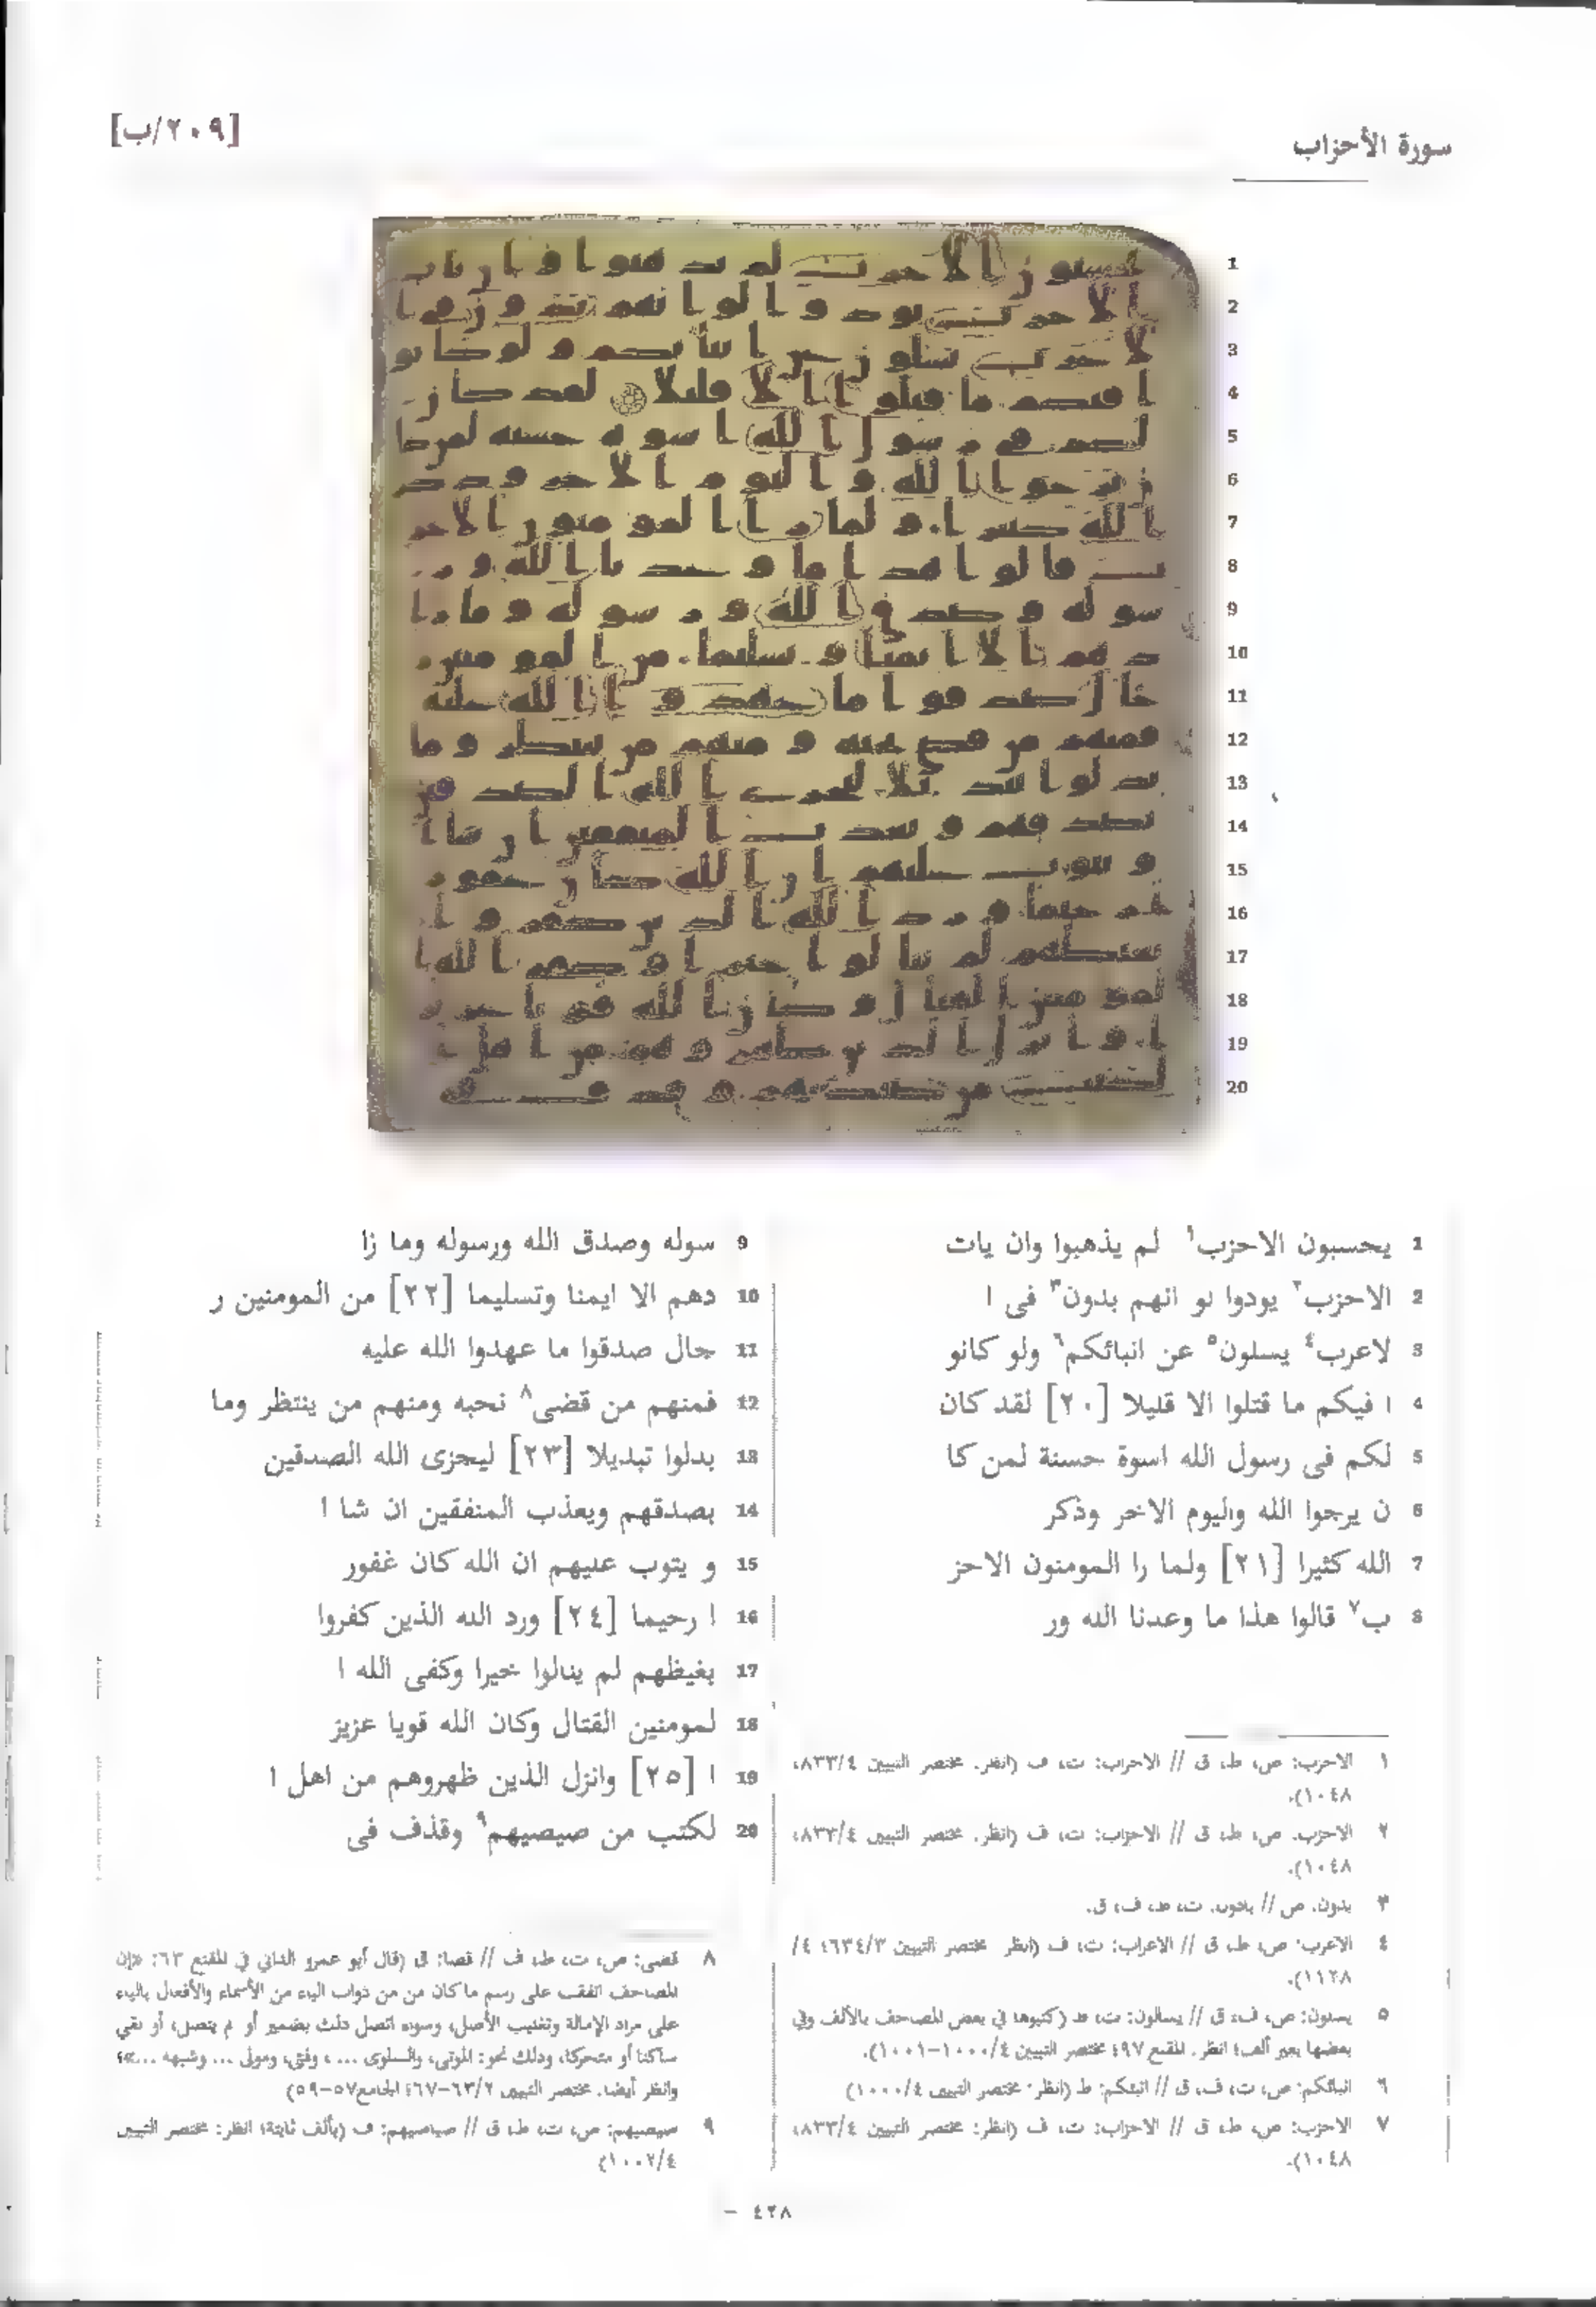 [٢٠٩/ب]
سورة الأحزاب
1 يحسبون الاحزب١ لم يذهبوا وان يات
2 الاحزب٢ يودوا لو انهم بدون٣ فى ا
3 لاعرب٤ يسلون٥ عن انبائكم٦ ولو كانو
4 ا فيكم ما قتلوا الا قليلا [٢٠] لقد كان
5 لكم فى رسول الله اسوة حسنة لمن كا
6 ن يرجوا الله واليوم الاخر وذكر
7 الله كثيرا [٢١] ولما را المومنون الاحز
8 ب٧ قالوا هذا ما وعدنا الله ور
9 سوله وصدق الله ورسوله وما زا
10 دهم الا ايمنا وتسليما [٢٢] من المومنين ر
11 جال صدقوا ما عهدوا الله عليه
12 فمنهم من قضى٨ نحبه ومنهم من ينتظر وما
13 بدلوا تبديلا [٢٣] ليجزى الله الصدقين
14 بصدقهم ويعذب المنفقين ان شا ا
15 و يتوب عليهم ان الله كان غفور
16 ا رحيما [٢٤] ورد الله الذين كفروا
17 بغيظهم لم ينالوا خيرا وكفى الله ا
18 لمومنين القتال وكان الله قويا عزيز
19 ا [٢٥] وانزل الذين ظهروهم من اهل ا
20 لكتب من صيصيهم٩ وقذف فى
١ الاحزب: ص، ط، ق // الاحزاب: ت، ف (انظر: مختصر التبيين ٨٣٣/٤،
١٠٤٨).
٢ الاحزب: ص، ط، ق // الاحزاب: ت، ف (انظر: مختصر التبيين ٨٣٣/٤،
١٠٤٨).
٣ بدون: ص // بادون: ت، ط، ف، ق.
٤ الاعرب: ص، ط، ق // الاعراب: ت، ف (انظر: مختصر التبيين ٦٣٤/٣؛ ٤/
١١٢٨).
٥ يسلون: ص، ف، ق // يسالون: ت، ط (كتبوها في بعض المصاحف بالألف وفي
بعضها بغير ألف؛ انظر: المقنع ٩٧؛ مختصر التبيين ١٠٠٠/٤-١٠٠١).
٦ انبائكم: ص، ت، ف، ق // انبئكم: ط (انظر: مختصر التبيين ١٠٠٠/٤)
٧ الاحزب: ص، ط، ق // الاحزاب: ت، ف (انظر: مختصر التبيين ٨٣٣/٤،
١٠٤٨).
٨ قضى: ص، ت، ط، ف // قصا: ق (قال أبو عمرو الداني في المقنع ٦٣: «إن
المصاحف اتفقت على رسم ما كان من من ذوات الياء من الأسماء والأفعال بالياء
على مراد الإمالة وتغليب الأصل، وسواء اتصل ذلك بضمير أو لم يتصل، أو لقي
ساكنا أو متحركا، وذلك نحو: الموتى، والسلوى ... ، وفتى، ومولى ... وشبهه ...»؛
وانظر أيضا: مختصر التبيين ٦٣/٢-٦٧؛ الجامع ٥٧-٥٩)
٩ صيصيهم: ص، ت، ط، ق // صياصيهم: ف (بألف ثابتة؛ انظر: مختصر التبيين
١٠٠٢/٤)
٤٢٨ -